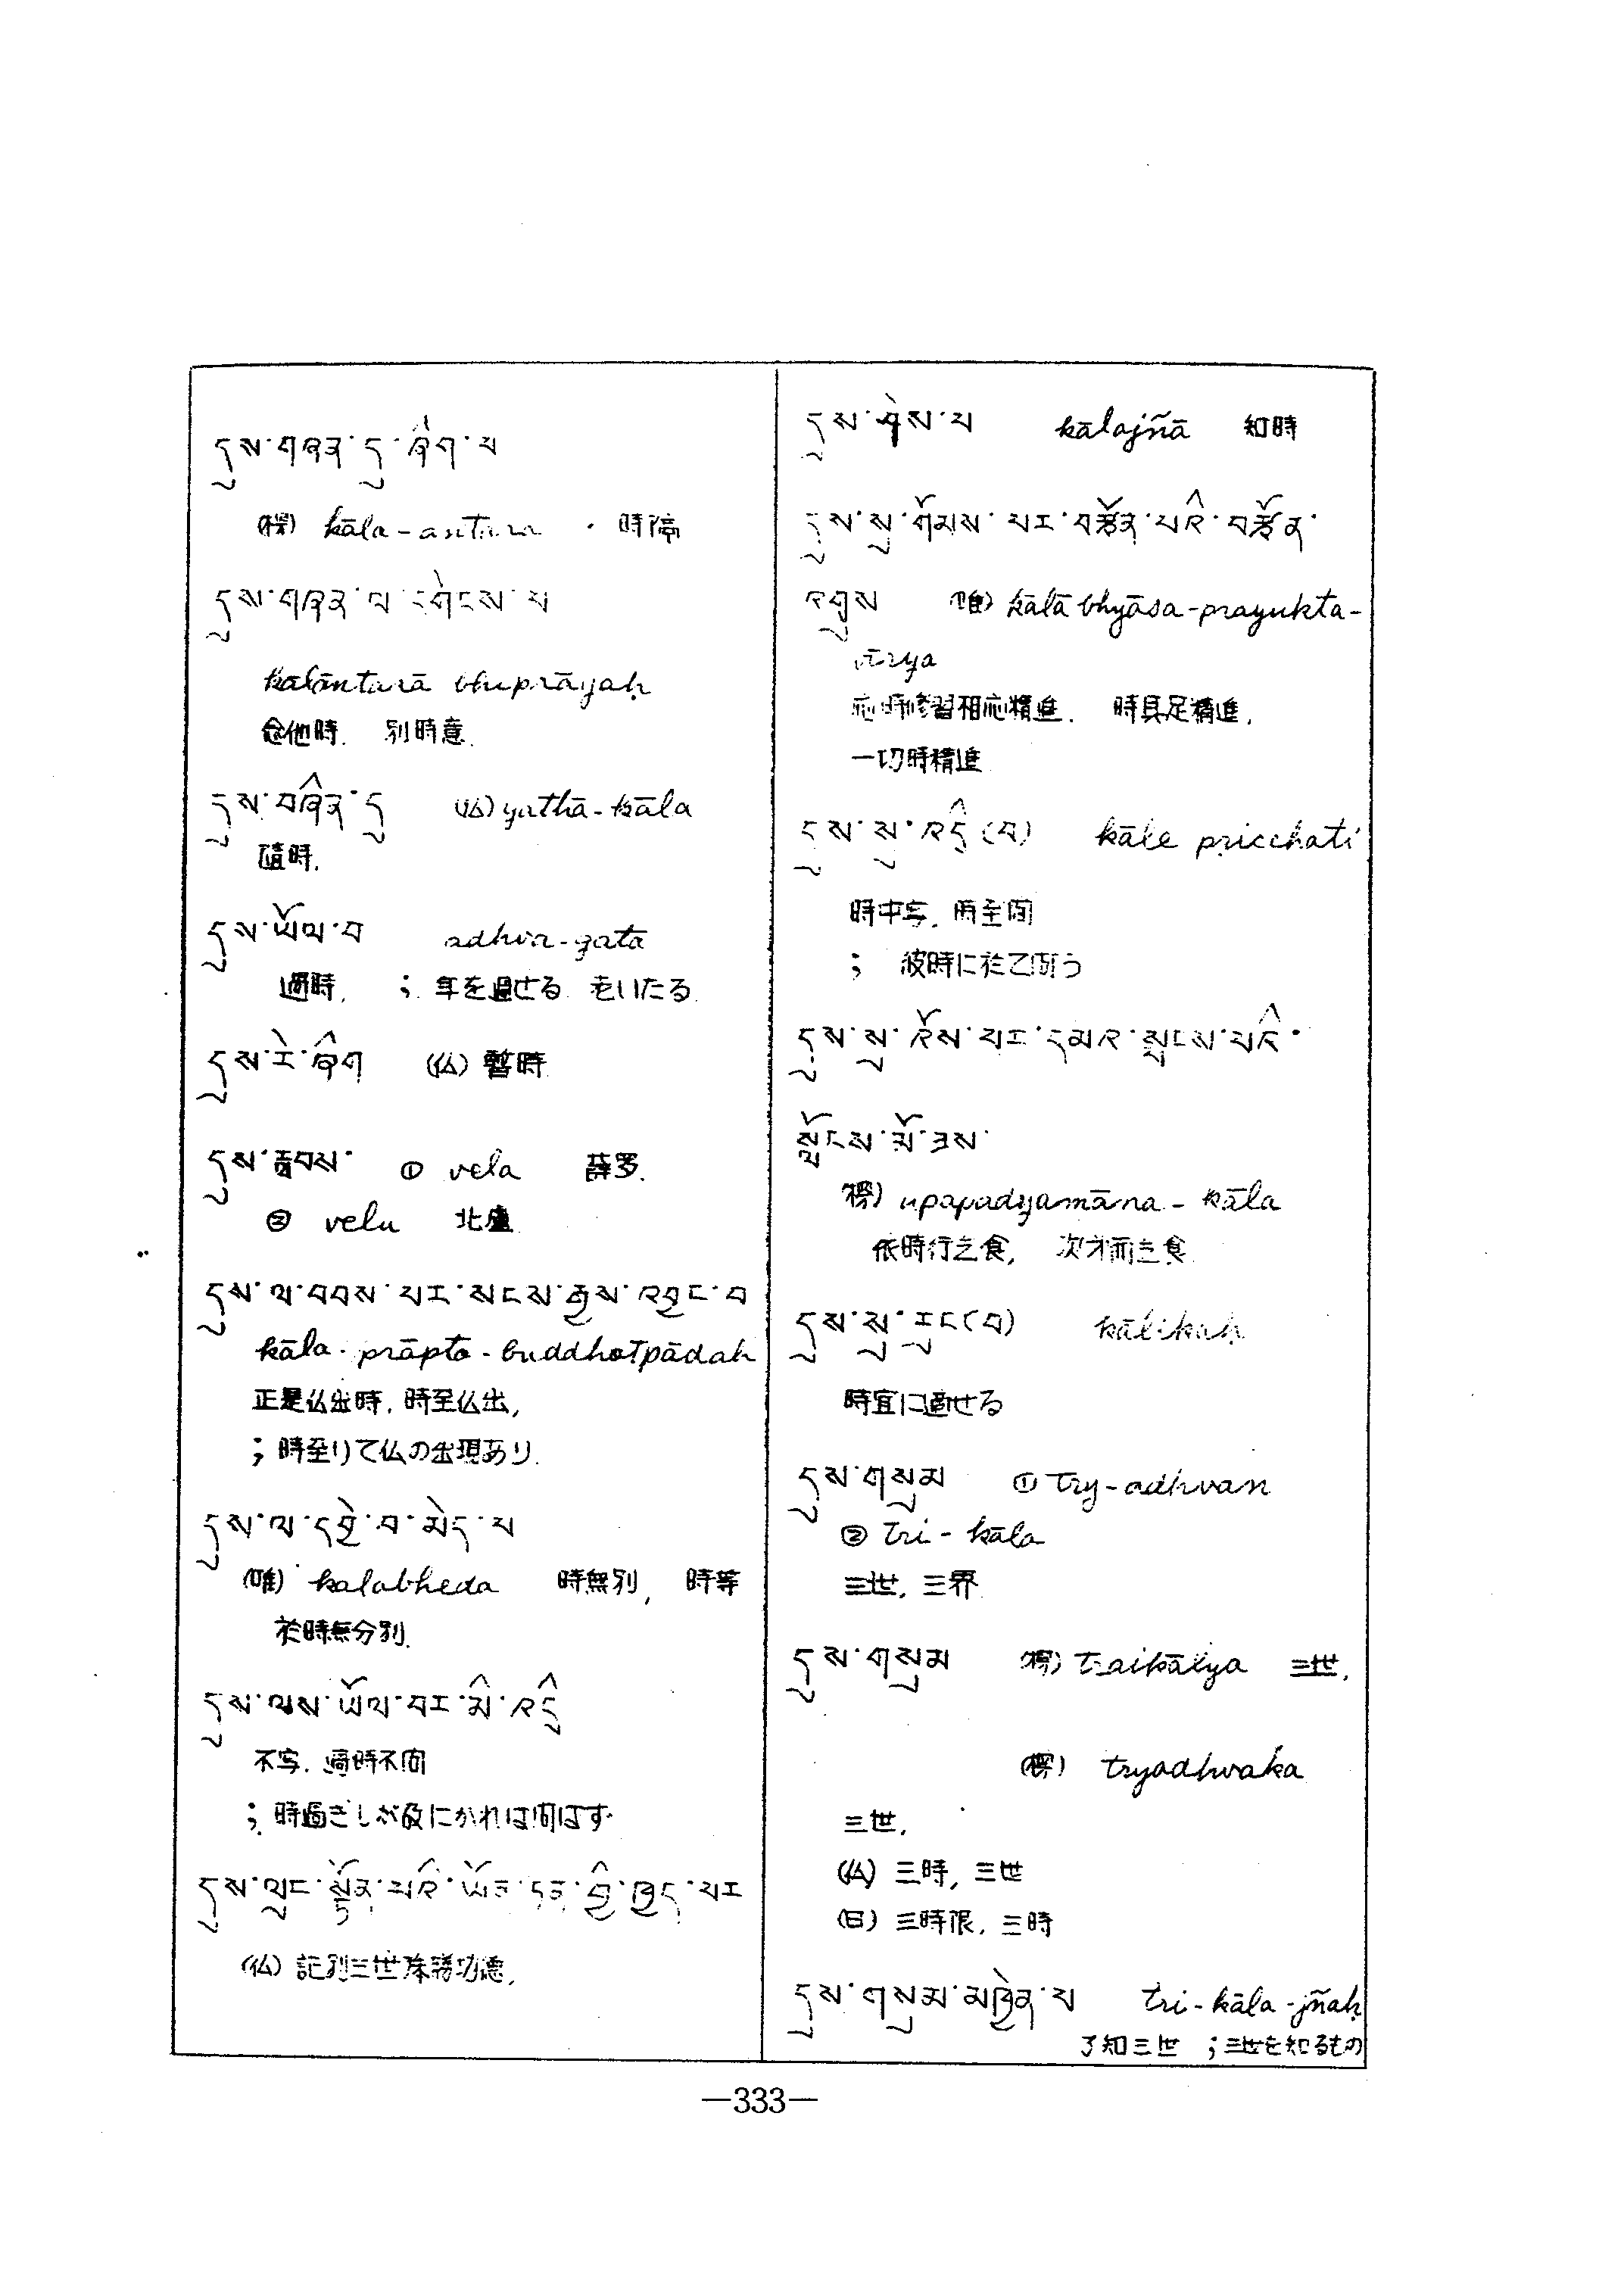 དུས་གཞན་དུ་ཞིག་པ
(標) kāla-antara ・時隔
དུས་གཞན་ལ་དགོངས་པ
kālāntarā bhiprāyaḥ
念他時. 別時意.
དུས་བཞིན་དུ (仏) yathā-kāla
隨時.
དུས་ཡོལ་བ adhva-gata
過時, ; 年を過せる 老いたる
དུས་རེ་ཞིག (仏) 暫時
དུས་རླབས་ ① vela 薛罗.
② velu 北盧
དུས་ལ་བབས་པར་སངས་རྒྱས་འབྱུང་བ
kāla-prāpta-buddhotpādaḥ
正是仏出時, 時至仏出,
; 時至りて仏の出現あり.
དུས་ལ་དབྱེ་བ་མེད་པ
(唯) kalabheda 時無別, 時等
於時無分別.
དུས་ལས་ཡོལ་བར་མི་འདྲི
不写. 過時不問
; 時過ぎしが故にかれは問はず
དུས་ལུང་སྟོན་པའི་ཡོན་ཏན་གྱི་ཁྱད་པར
(仏) 記別三世殊勝功德,
དུས་ཤེས་པ kālajñā 知時
དུས་སུ་གོམས་པར་བརྩོན་པའི་བརྩོན་
འགྲུས (唯) kālā bhyāsa-prayukta-
vīrya
応時修習相応精進. 時具足精進,
一切時精進
དུས་སུ་འདྲི་(བ) kāle pricchati
時中写. 時至問
; 彼時に於て問う
དུས་སུ་རོས་པར་དམར་སླངས་པའི་
སློངས་མོ་ཟས་
(標) upapadyamāna-kāla
依時行乞食, 次才而乞食
དུས་སུ་རུང་(བ) kālikaḥ
時宜に適せる
དུས་གསུམ ① try-adhvan
② tri-kāla
三世, 三界
དུས་གསུམ (標) traikālya 三世,
(標) tryadhvaka
三世,
(仏) 三時, 三世
(日) 三時限, 三時
དུས་གསུམ་མཁྱེན་པ tri-kāla-jñaḥ
了知三世 ; 三世を知るもの
—333—